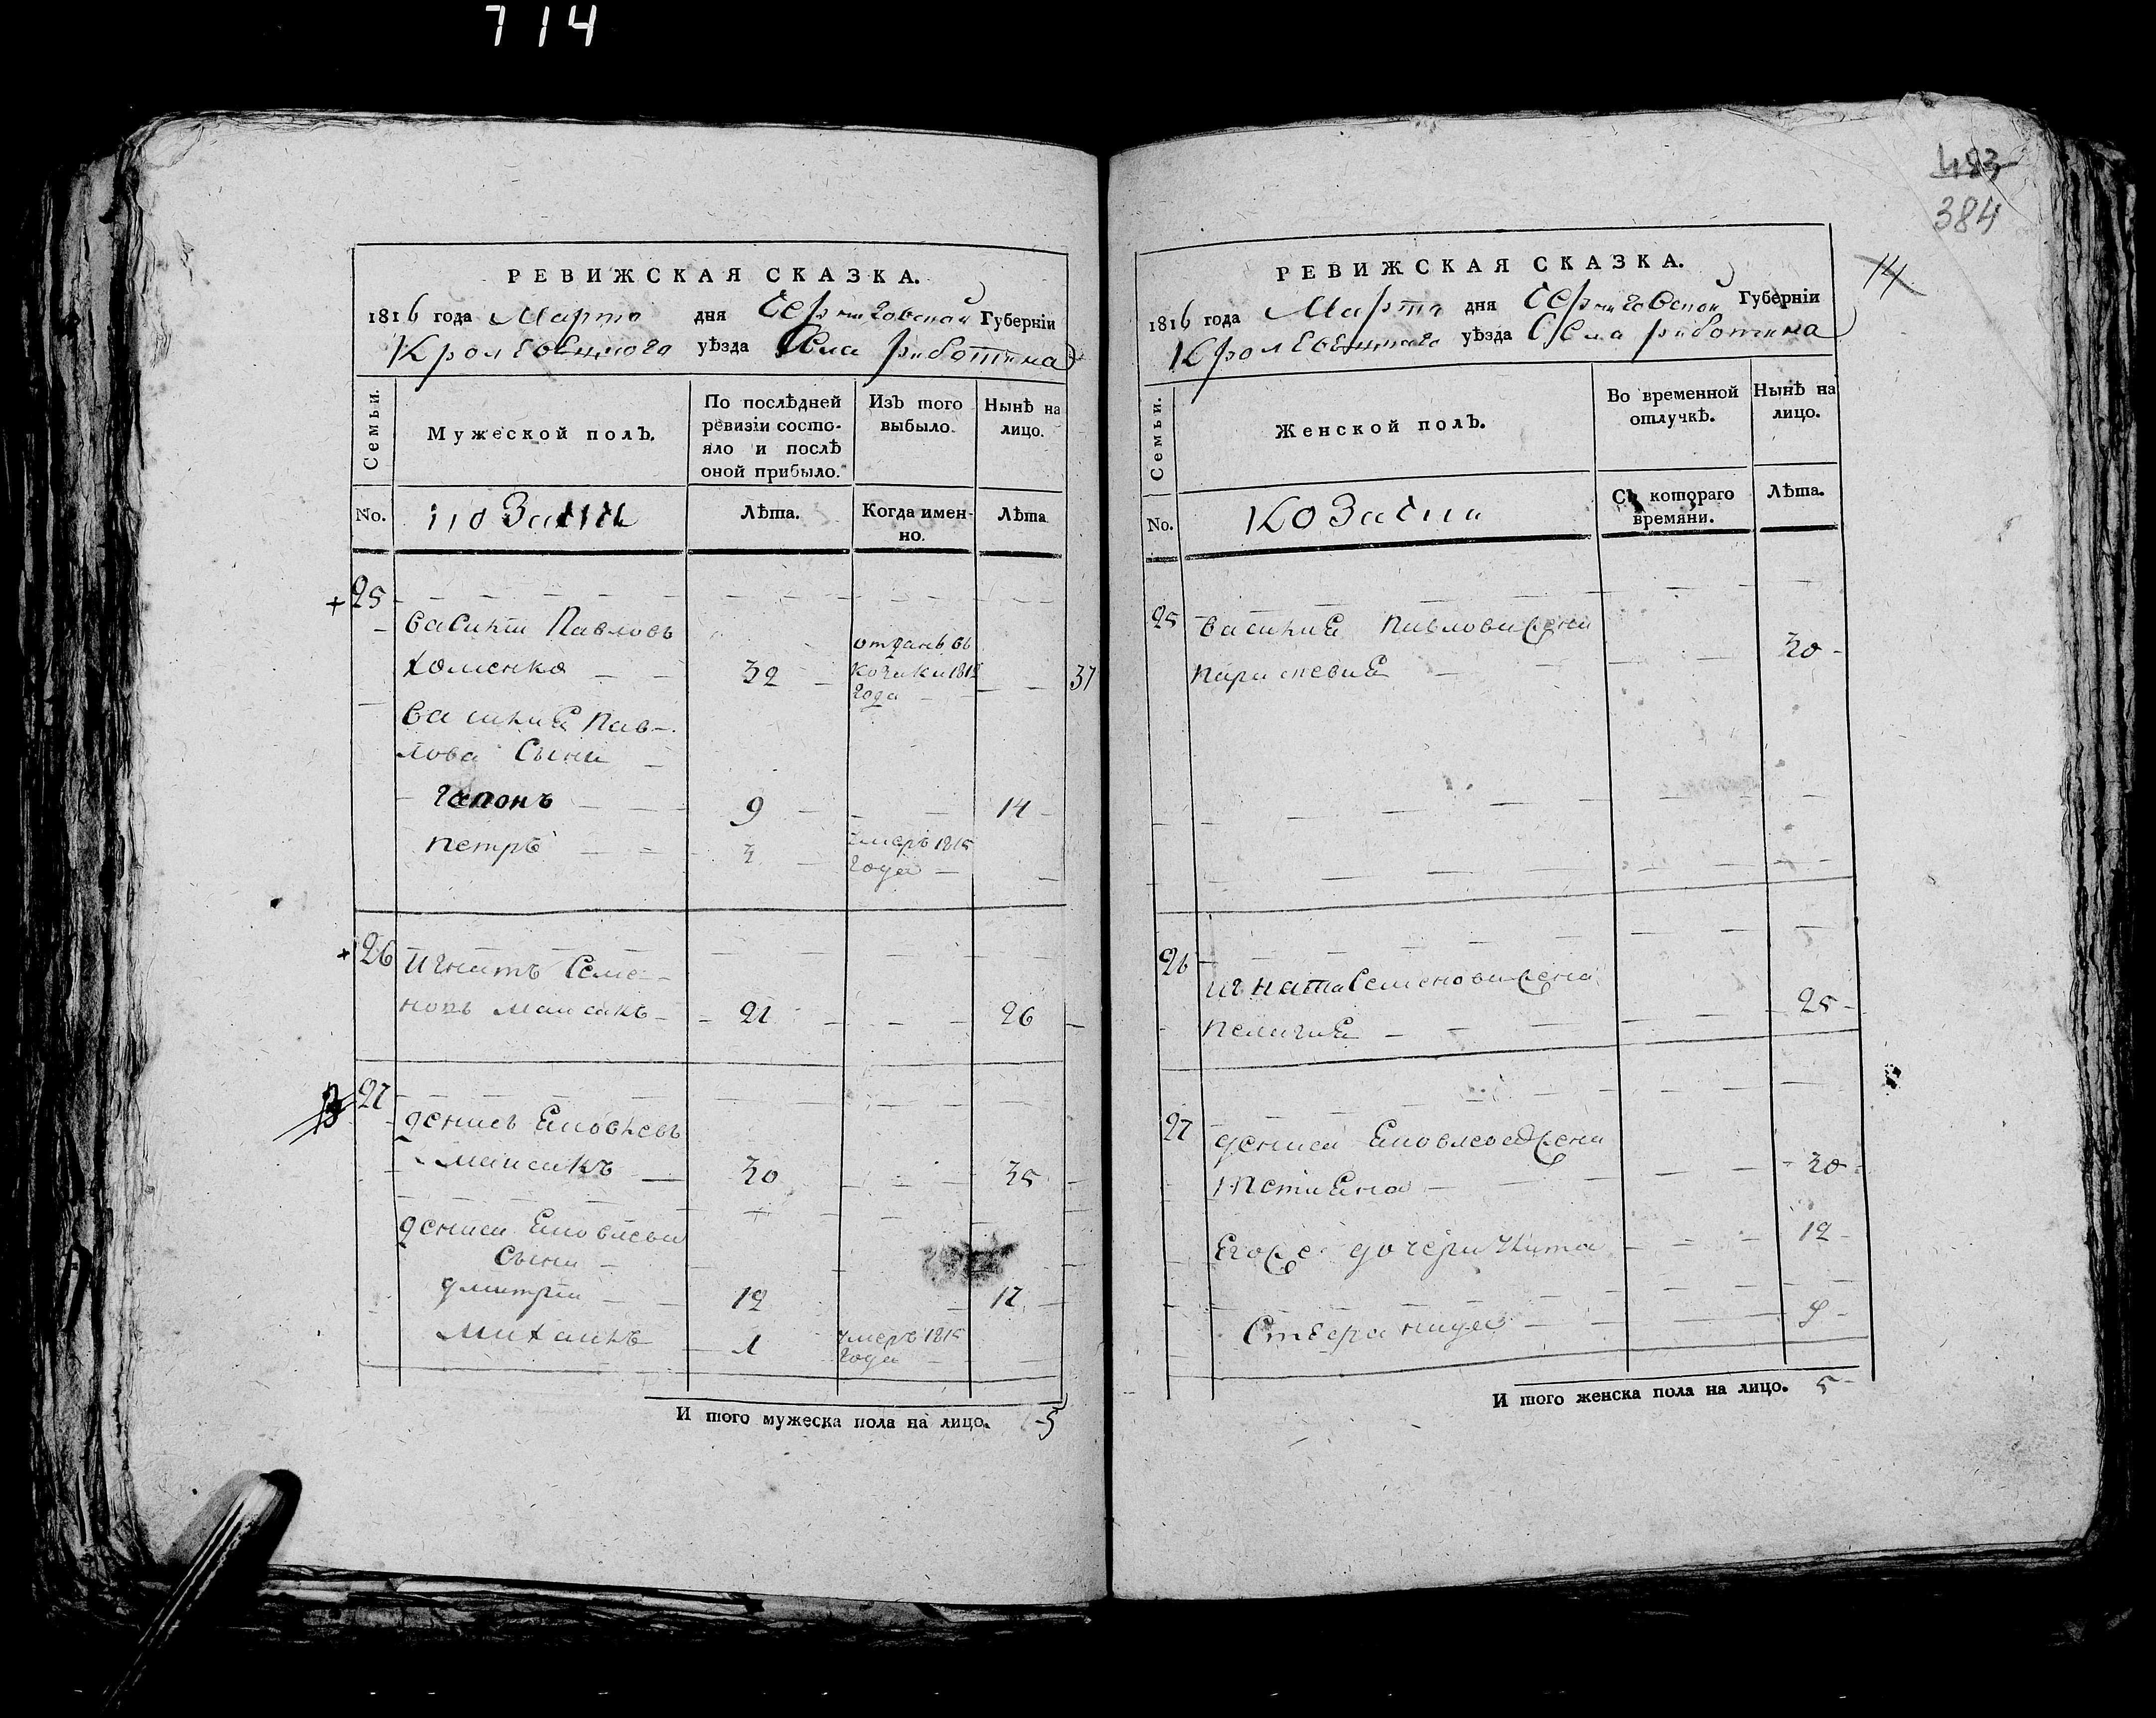 714
483
384
14
РЕВИЖСКАЯ СКАЗКА.
1816 года Марта дня Черниговской Губерніи
Кролевецкого уѣзда Села рыботина
Семьи.
Мужеской полъ.
По послѣдней
ревизіи состо-
яло и послѣ
оной прибыло.
Изъ того
выбыло.
Нынѣ на
лицо.
No.
козаки
Лѣта.
Когда имен-
но.
Лѣта
25
василій Павловъ
хоменко 32
отданъ въ
козаки 1812
года
37
василия Пав-
лова Сыни
гапонъ 9 14
петръ 3
умеръ 1815
года
26
игнатъ Семе-
новъ 21 26
27
денисъ
30 35
дениса
сыни
дмитрій 12 17
михаилъ 1
умеръ 1815
года
И того мужеска пола на лицо. 5
РЕВИЖСКАЯ СКАЗКА.
1816 года Марта дня Черниговской Губерніи
Кролевецкого уѣзда Села рыботина
Семьи.
Женской полъ.
Во временной
отлучкѣ.
Нынѣ на
лицо.
No.
козаки
Съ котораго
времяни.
Лѣта.
25
василия павлова жена
параскевия 30
26
игната Семенова жена
пелагия 25
27
дениса жена
30
Его же дочери 12
Степанида 9
И того женска пола на лицо. 5